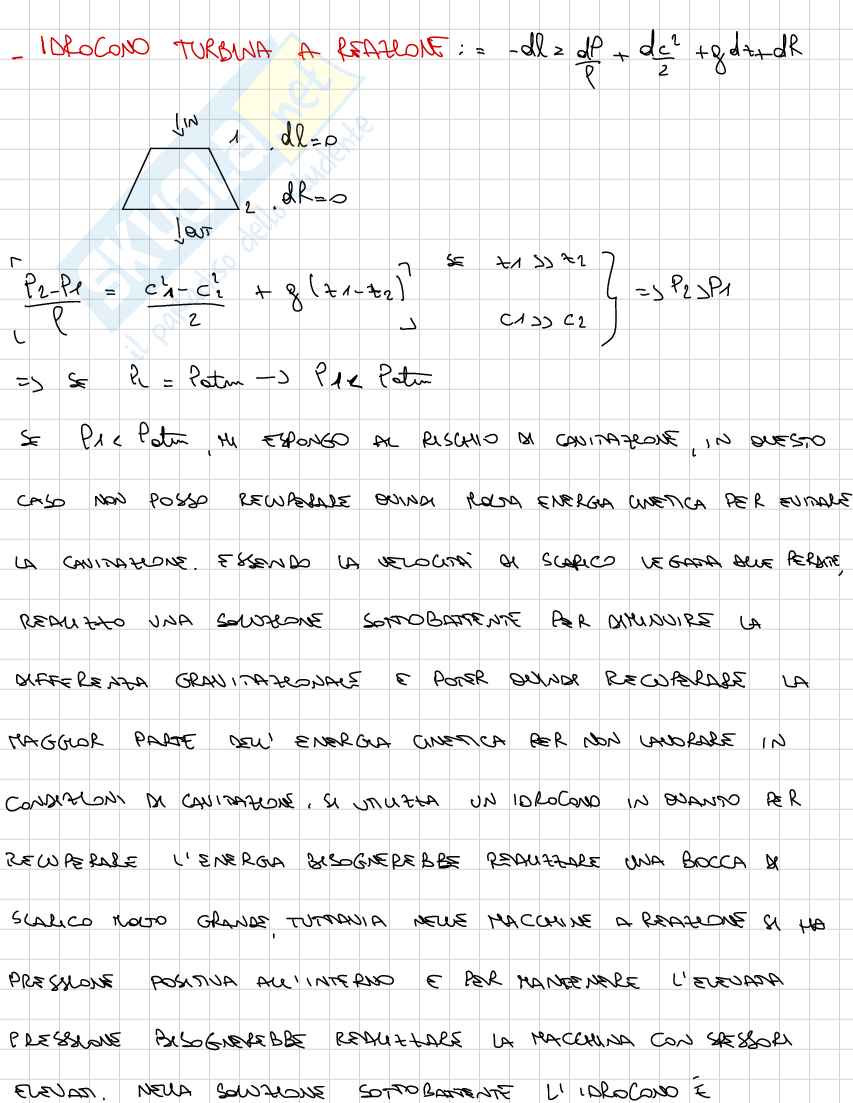 - IDROCONO TURBINA A REAZIONE: = -dl = dP/ρ + dc²/2 + g dz + dR
↓IN
1 . dl=0
2 . dR=0
↓OUT
[ (P2-P1)/ρ = (c1²-c2²)/2 + g(z1-z2) ] SE z1 >> z2
c1 >> c2 } => P2>P1
=> SE P2 = Patm -> P1 < Patm
SE P1 < Patm, MI ESPONGO AL RISCHIO DI CAVITAZIONE, IN QUESTO
CASO NON POSSO RECUPERARE QUINDI MOLTA ENERGIA CINETICA PER EVITARE
LA CAVITAZIONE. ESSENDO LA VELOCITÀ DI SCARICO LEGATA ALLE PERDITE,
REALIZZO UNA SOLUZIONE SOTTOBATTENTE PER DIMINUIRE LA
DIFFERENZA GRAVITAZIONALE E POTER QUINDI RECUPERARE LA
MAGGIOR PARTE DELL'ENERGIA CINETICA PER NON LAVORARE IN
CONDIZIONI DI CAVITAZIONE. SI UTILIZZA UN IDROCONO IN QUANTO PER
RECUPERARE L'ENERGIA BISOGNEREBBE REALIZZARE UNA BOCCA DI
SCARICO MOLTO GRANDE, TUTTAVIA NELLE MACCHINE A REAZIONE SI HA
PRESSIONE POSITIVA ALL'INTERNO E PER MANTENERE L'ELEVATA
PRESSIONE BISOGNEREBBE REALIZZARE LA MACCHINA CON SPESSORI
ELEVATI. NELLA SOLUZIONE SOTTOBATTENTE L'IDROCONO È
SKUOLA.net
il paradiso dello studente